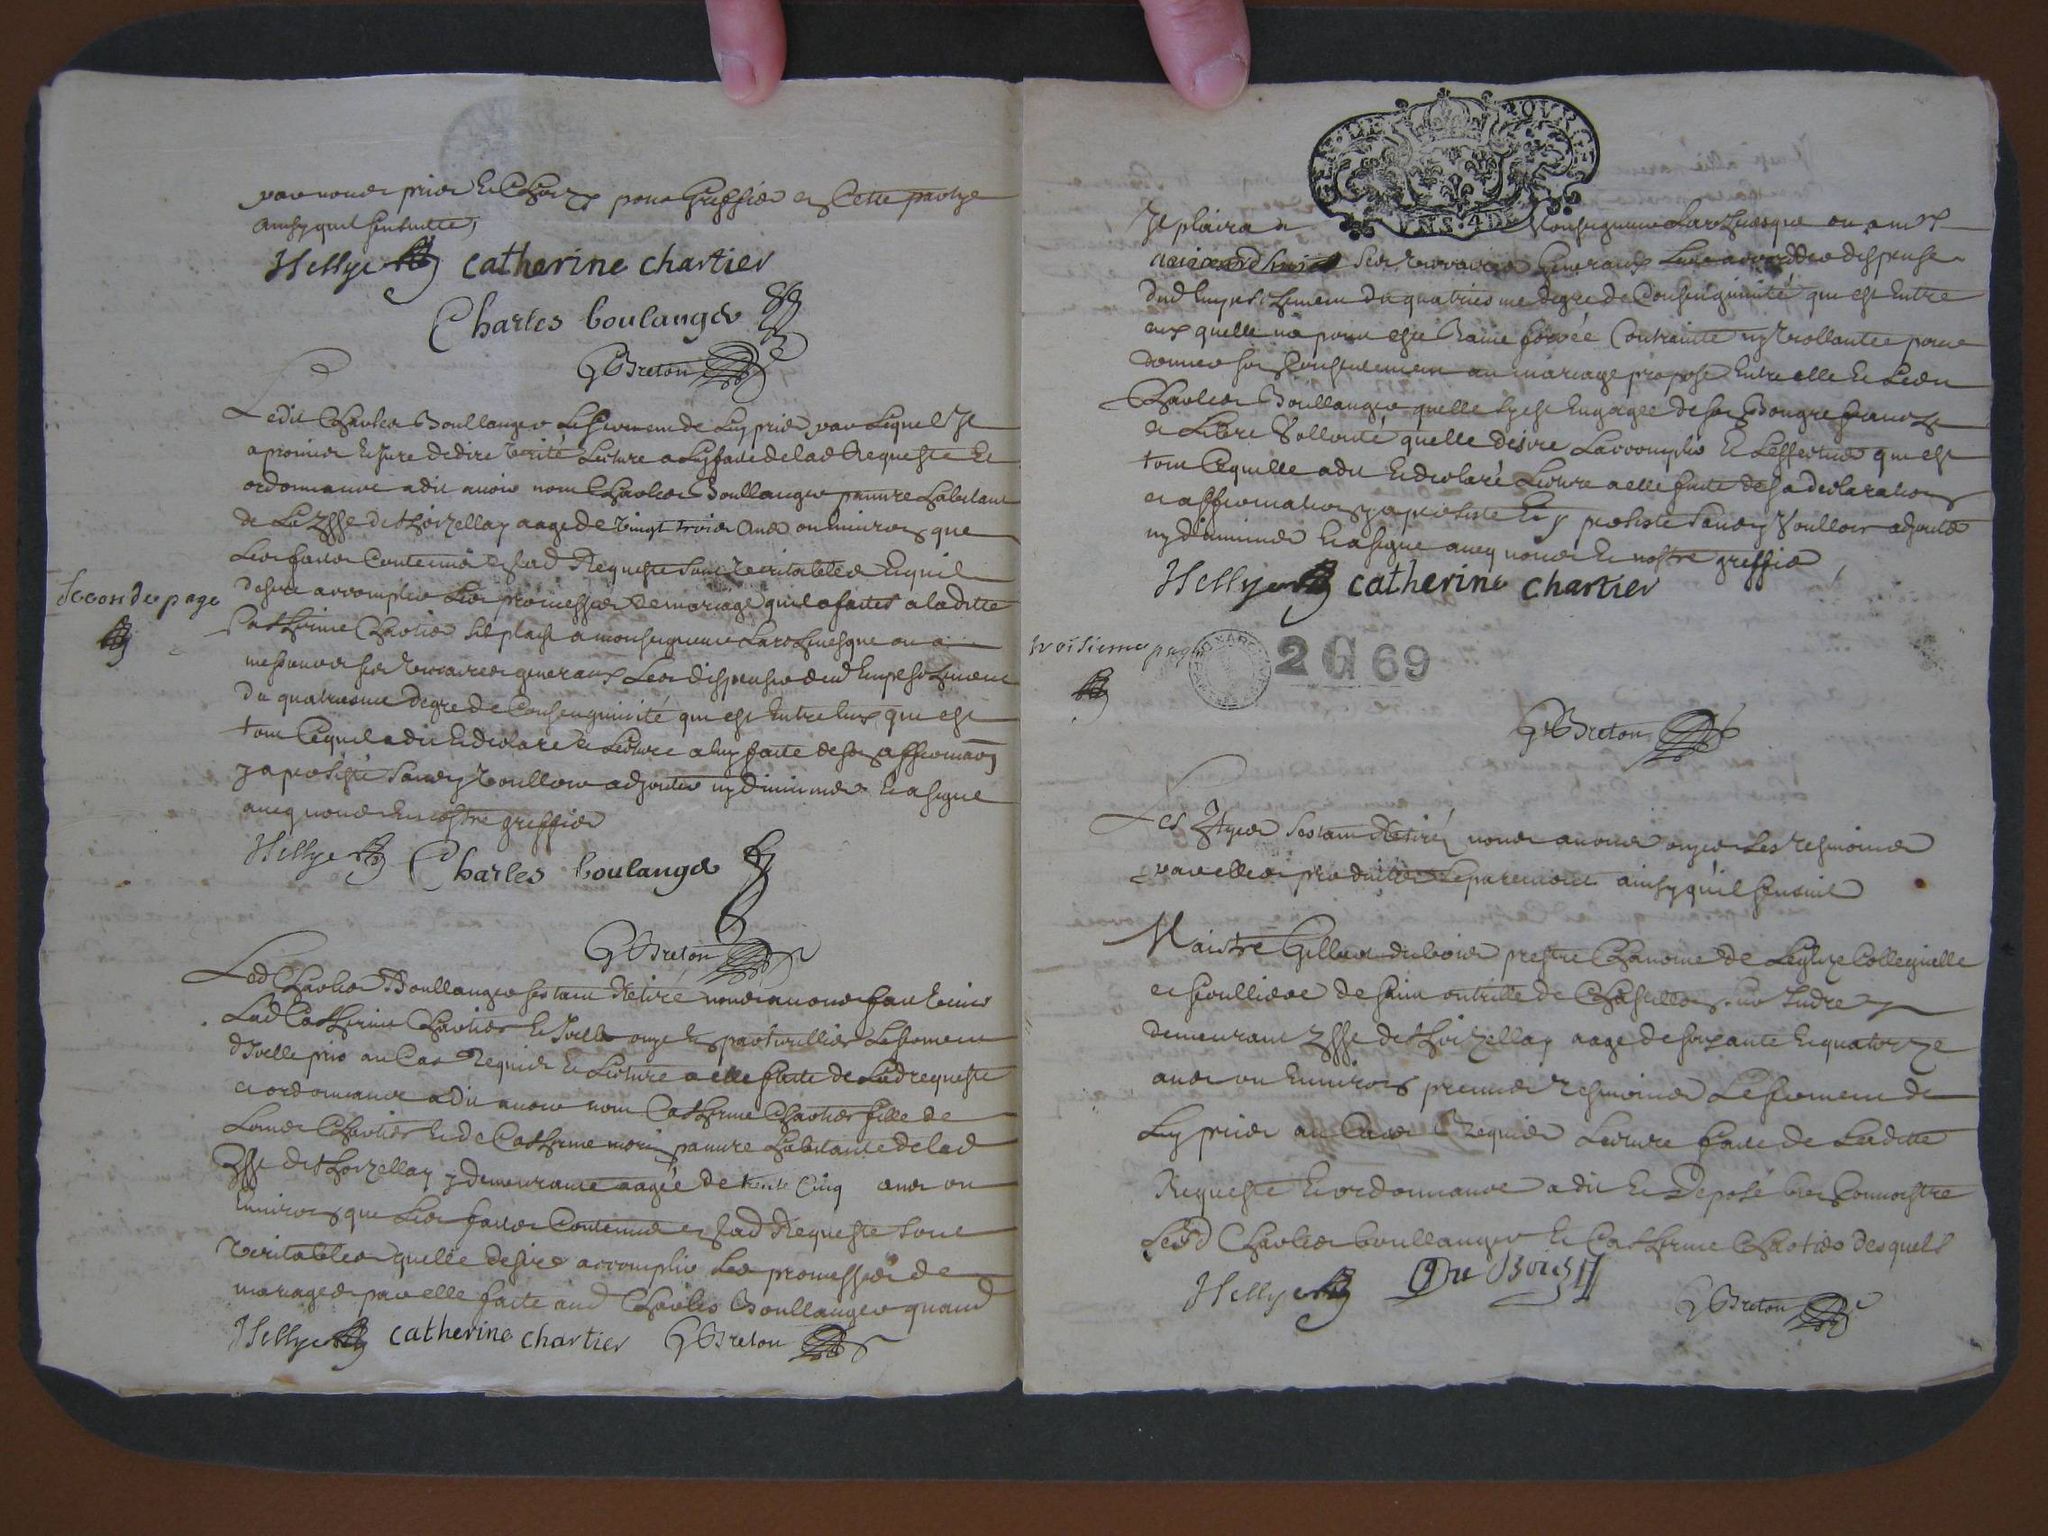 par nous pris et choizy pour Greffier en Cette partye
ainsy quil sensuitte,
Hellye catherine chartier
Charles boulanger
G Breton
Ledit Charles Boullanger le serment de luy pris par lequel Il
a promis et Jure de dire verité lecture a luy faite de lad Requeste et
ordonnance a dit avoir nom Charles Boullanger pauvre habitant
de la de aagé de vingt trois ans ou environ que
les faits Contenus en lad Requeste sont veritables et quil
desire accomplir les promesses de mariage quil a faites a laditte
Seconde page
Catherine Chartier sil plaist a monseigneur Larchevesque ou a
messieurs ses vicaires generaux les dispenser dud Empeschement
du quatriesme degre de Consenguinité qui est Entre Eux, qui est
tout Cequil a dit et declaré et lecture a luy faite de son affirmaon
y a persisté sans y voulloir adjouter ny diminuer et a signé
avecq nous et nostre greffier
Hellye Charles boulanger
G Breton
Led Charles Boullanger sestant Retiré nous avons fait venir
lad Catherine Chartier et Icelle ouye en particullier le serment
dIcelle pris au Cas Requis et lecture a elle faite de lad requeste
et ordonnance a dit avoir nom Catherine Chartier fille de
Chartier et de Catherine morin pauvre habitante de lad
y demeurante aagée de trente Cinq ans ou
Environ que les faits Contenus en lad Requeste sont
veritables quelle desire accomplir les promesses de
mariage par elle faite aud Charles Boullanger quand
Hellye catherine chartier G Breton
Il plaira a Monseigneur Larchevesque ou a mrs
ses vicaires Generaux leur accorder dispense
dud Empeschement du quatriesme degre de Consenguinité qui est Entre
eux quelle na point esté forcée Contrainte ny viollantée pour
donner son Consentement au mariage proposé Entre elle et Ledit
Charles Boullanger quelle sy est Engagée de son Bongré
et Libre Vollonté quelle desire Laccomplir et Leffectuer qui est
tout Cequelle a dit et declaré Lecture a elle faite de sa declaration
et affirmation y a persisté et y persiste sans y Voulloir adjouter
ny diminuer et a signé avecq nous et nostre greffier,
Hellye catherine chartier
troisieme page
2 G 69
G Breton
Les Parties sestant Retirés nous avons ouy les tesmoins
par elles produits separement ainsy quil sensuit
Maistre Gilles duboies prestre Chanoine de Leglize Collegialle
et seculliere de saint de Chastillon sur Indre
demeurant aagé de soixante et quatorze
ans ou Environ premier tesmoin Le serment de
luy pris au Cas Requis Lecture faite de laditte
Requeste et ordonnance a dit et deposé bien Connoistre
lesd Charles boullanger et Catherine Chartier desquels
Hellye Du Bois
G Breton